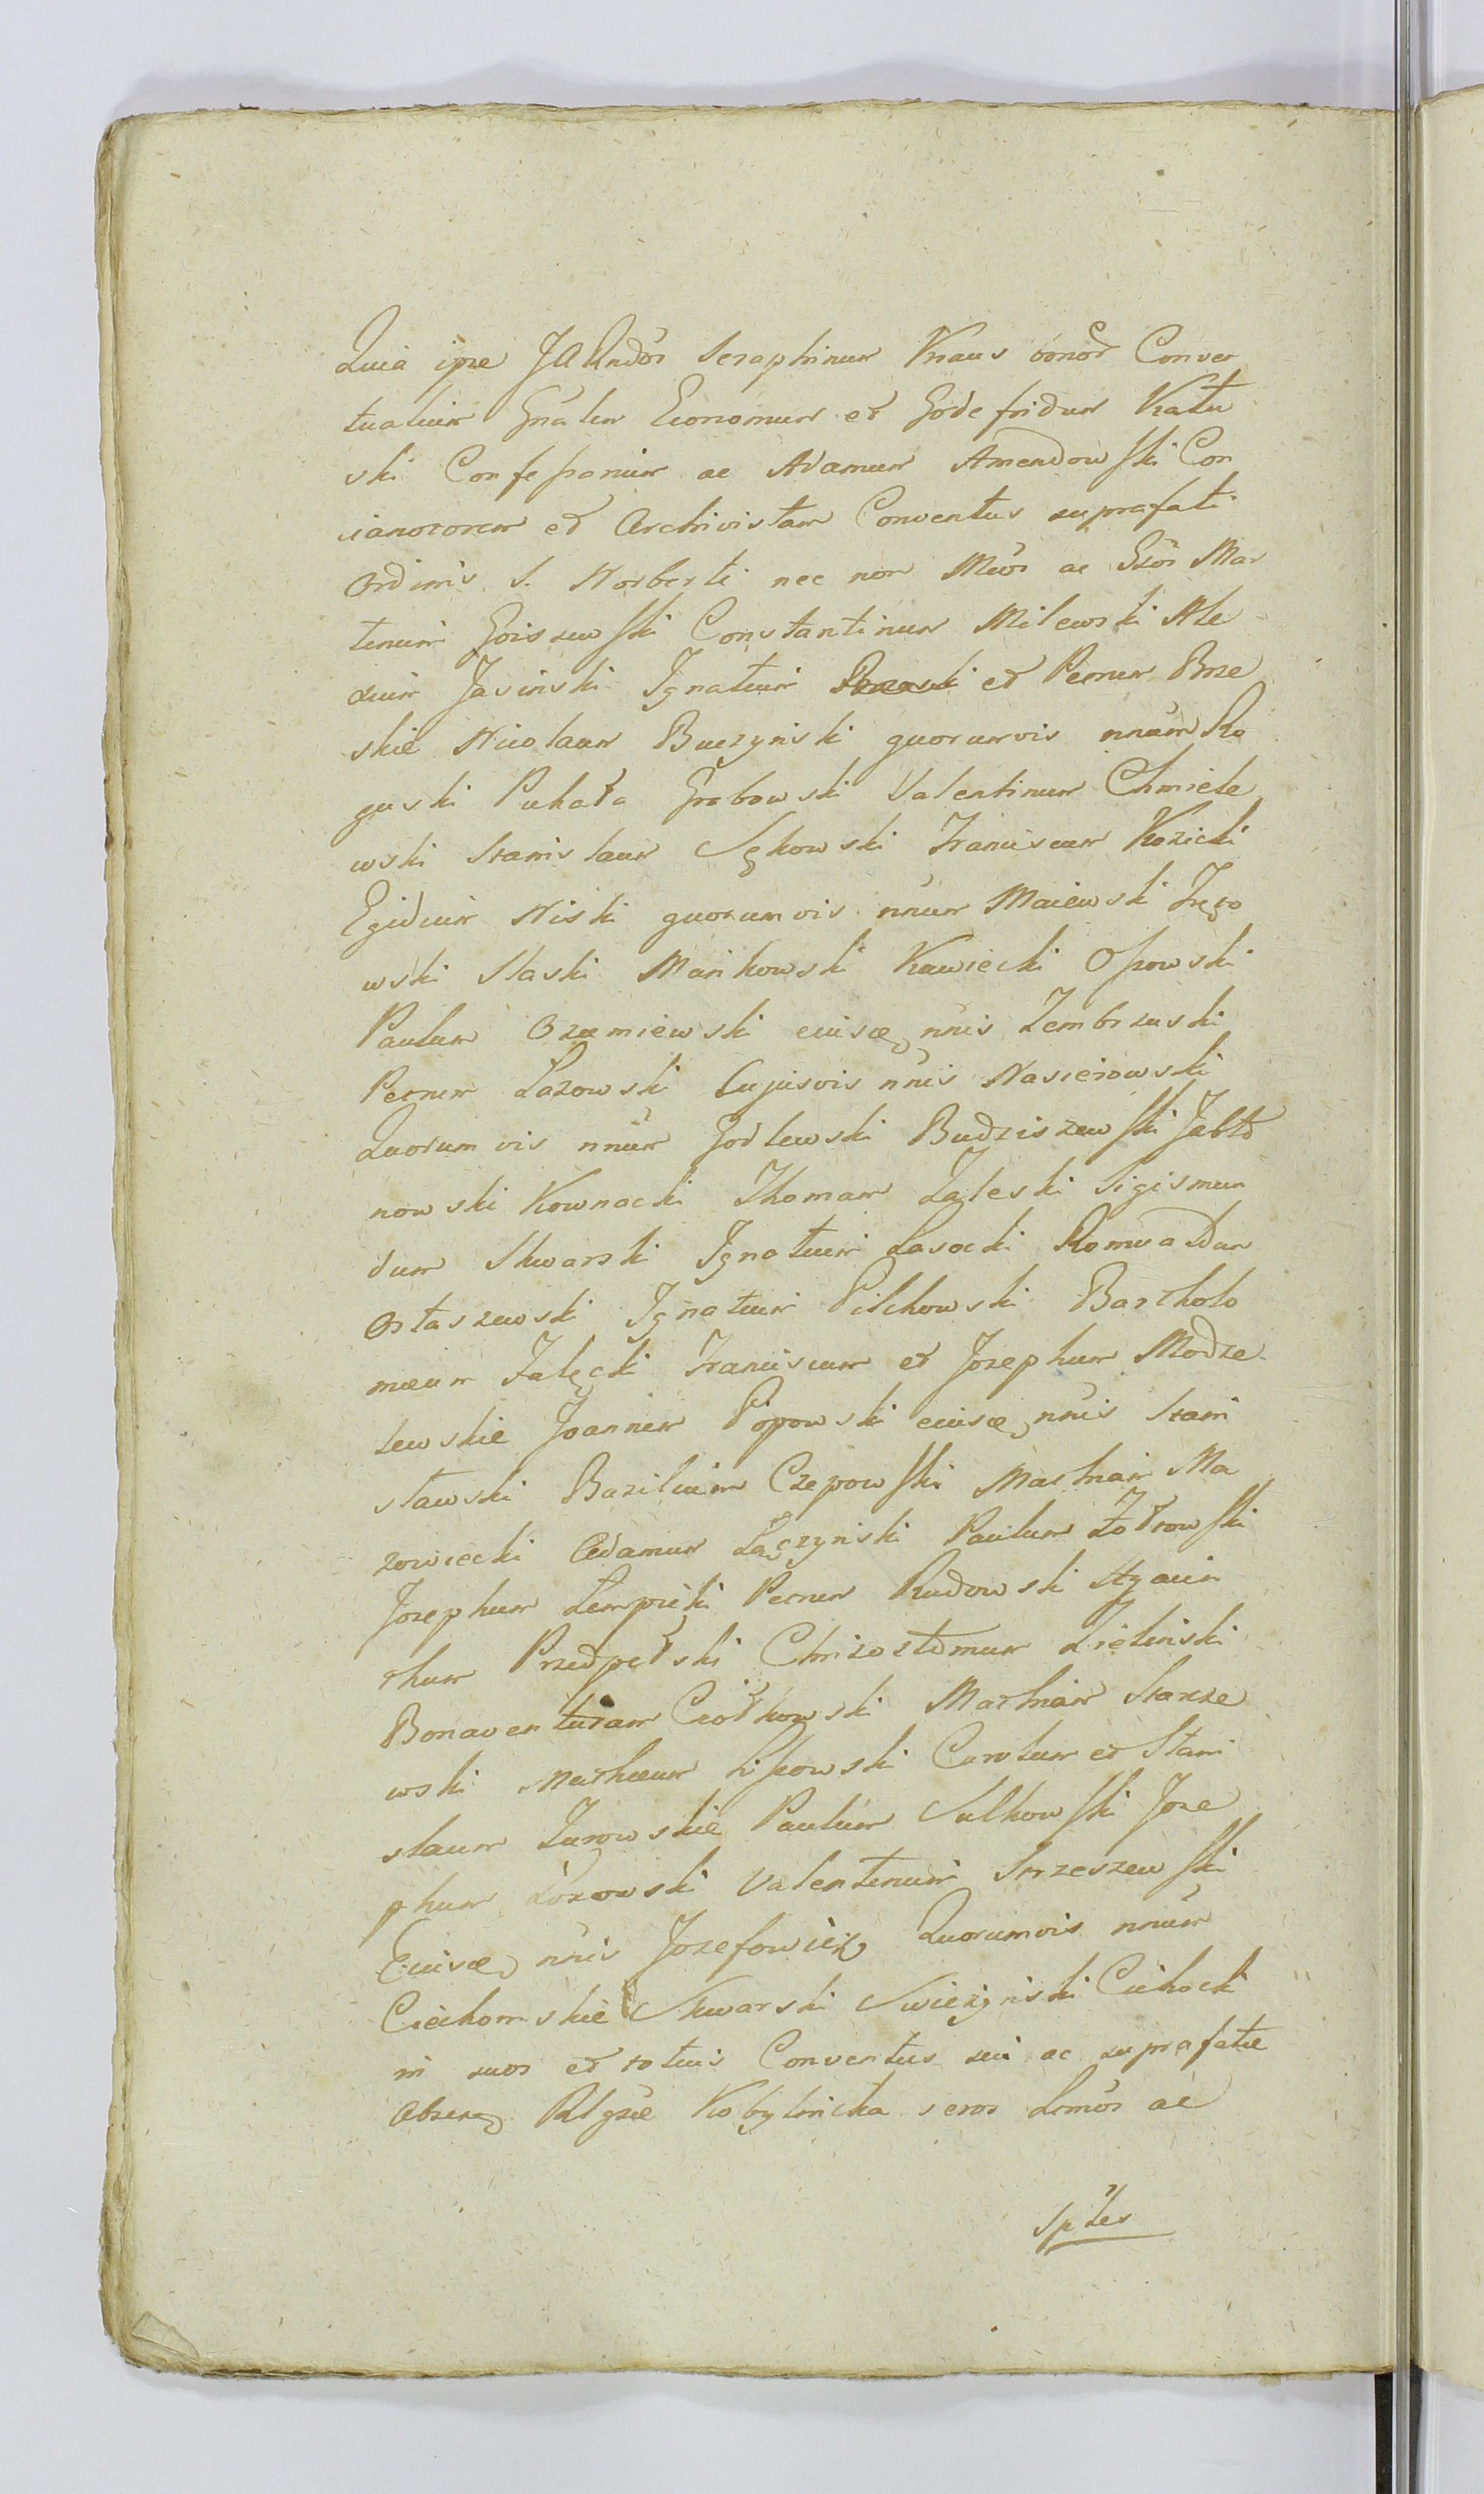 Quia ipse JARndos Seraphinum Kraus bonor Conven
tualium Gnalem Economum et Godefridum Katu
ski Confessarium ac Adamum Amendowski Con
cionatorem et Archivistam Conventus suprafati
Ordinis S. Norberti nec non Mcos ac Gsos Mar
tinum Goiszewski Constantinum Milewski Ale
xium Jasinski Ignatium et Petrum Brze
skie Nicolaum Buczynski quorumvis nnum Ro
guski Puhała Grabowski Valentinum Chmiele
wski Stanislaum Sękowski Franciscum Kozicki
Egidium Niski quorumvis nnum Maiewski
wski Slaski Mankowski Kawiecki Ossowski
Paulum Grzmiewski cuiscq nnis Zembrzuski
Petrum Lazowski Cujusvis nnis Nasierowski
Quorumvis nnum Godlewski Budziszewski Jabło
nowski Kownacki Thomam Zaleski Sigismun
dum Skwarski Ignatium Lasocki Romualdum
Ostaszewski Ignatium Pilchowski Bartholo
mæum Załęcki Franciscum et Josephum Modze
lewskie Joannem Popowski cuiscq nnis Stani
sławski Bazilium Czepowski Mathiam Ma
zowiecki Adamum Łączynski Paulum Żołtowski
Josephum Lempicki Petrum Rudowski Hyacin
thum Przedpełski Chrizostomum Zielinski
Bonaventuram Ciołkowski Mathiam Starze
wski Mathæum Lissowski Carolum et Stani
slaum Zurowskie Paulum Sulkowski Jose
phum Łozowski Valentinum Strzeszewski
Cuiscq nnis Jozefowicz Quorumvis nnum
Ciechomskie Skwarski Swiezynski Cichocki
in suos et totius Conventus sui ac suprafatæ
Absenq Rlgsæ Kobylincka veros Lnmos ac
Sples